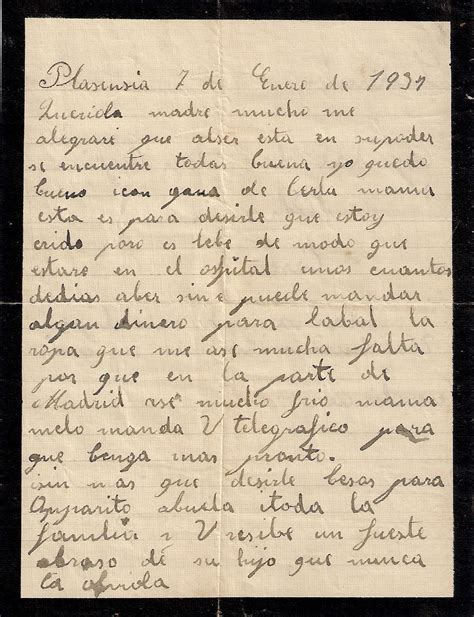 Plasensia 7 de Enero de 1937
Querida madre mucho me
alegrare que alser esta en supoder
se encuentre todas buena yo quedo
bueno icon gana de berla mama
esta es para desirle que estoy
erido pero es lebe de modo que
estare en el ospital unos cuantos
dedias aber sime puede mandar
algun dinero para labal la
ropa que me ase mucha falta
por que en la parte de
Madrid ase mucho frio mama
melo manda V telegrafico para
que benga mas pronto.
isin mas que desirle besos para
Anparito abuela itoda la
familia i V resibe un fueste
abraso de su hijo que nunca
la olvida